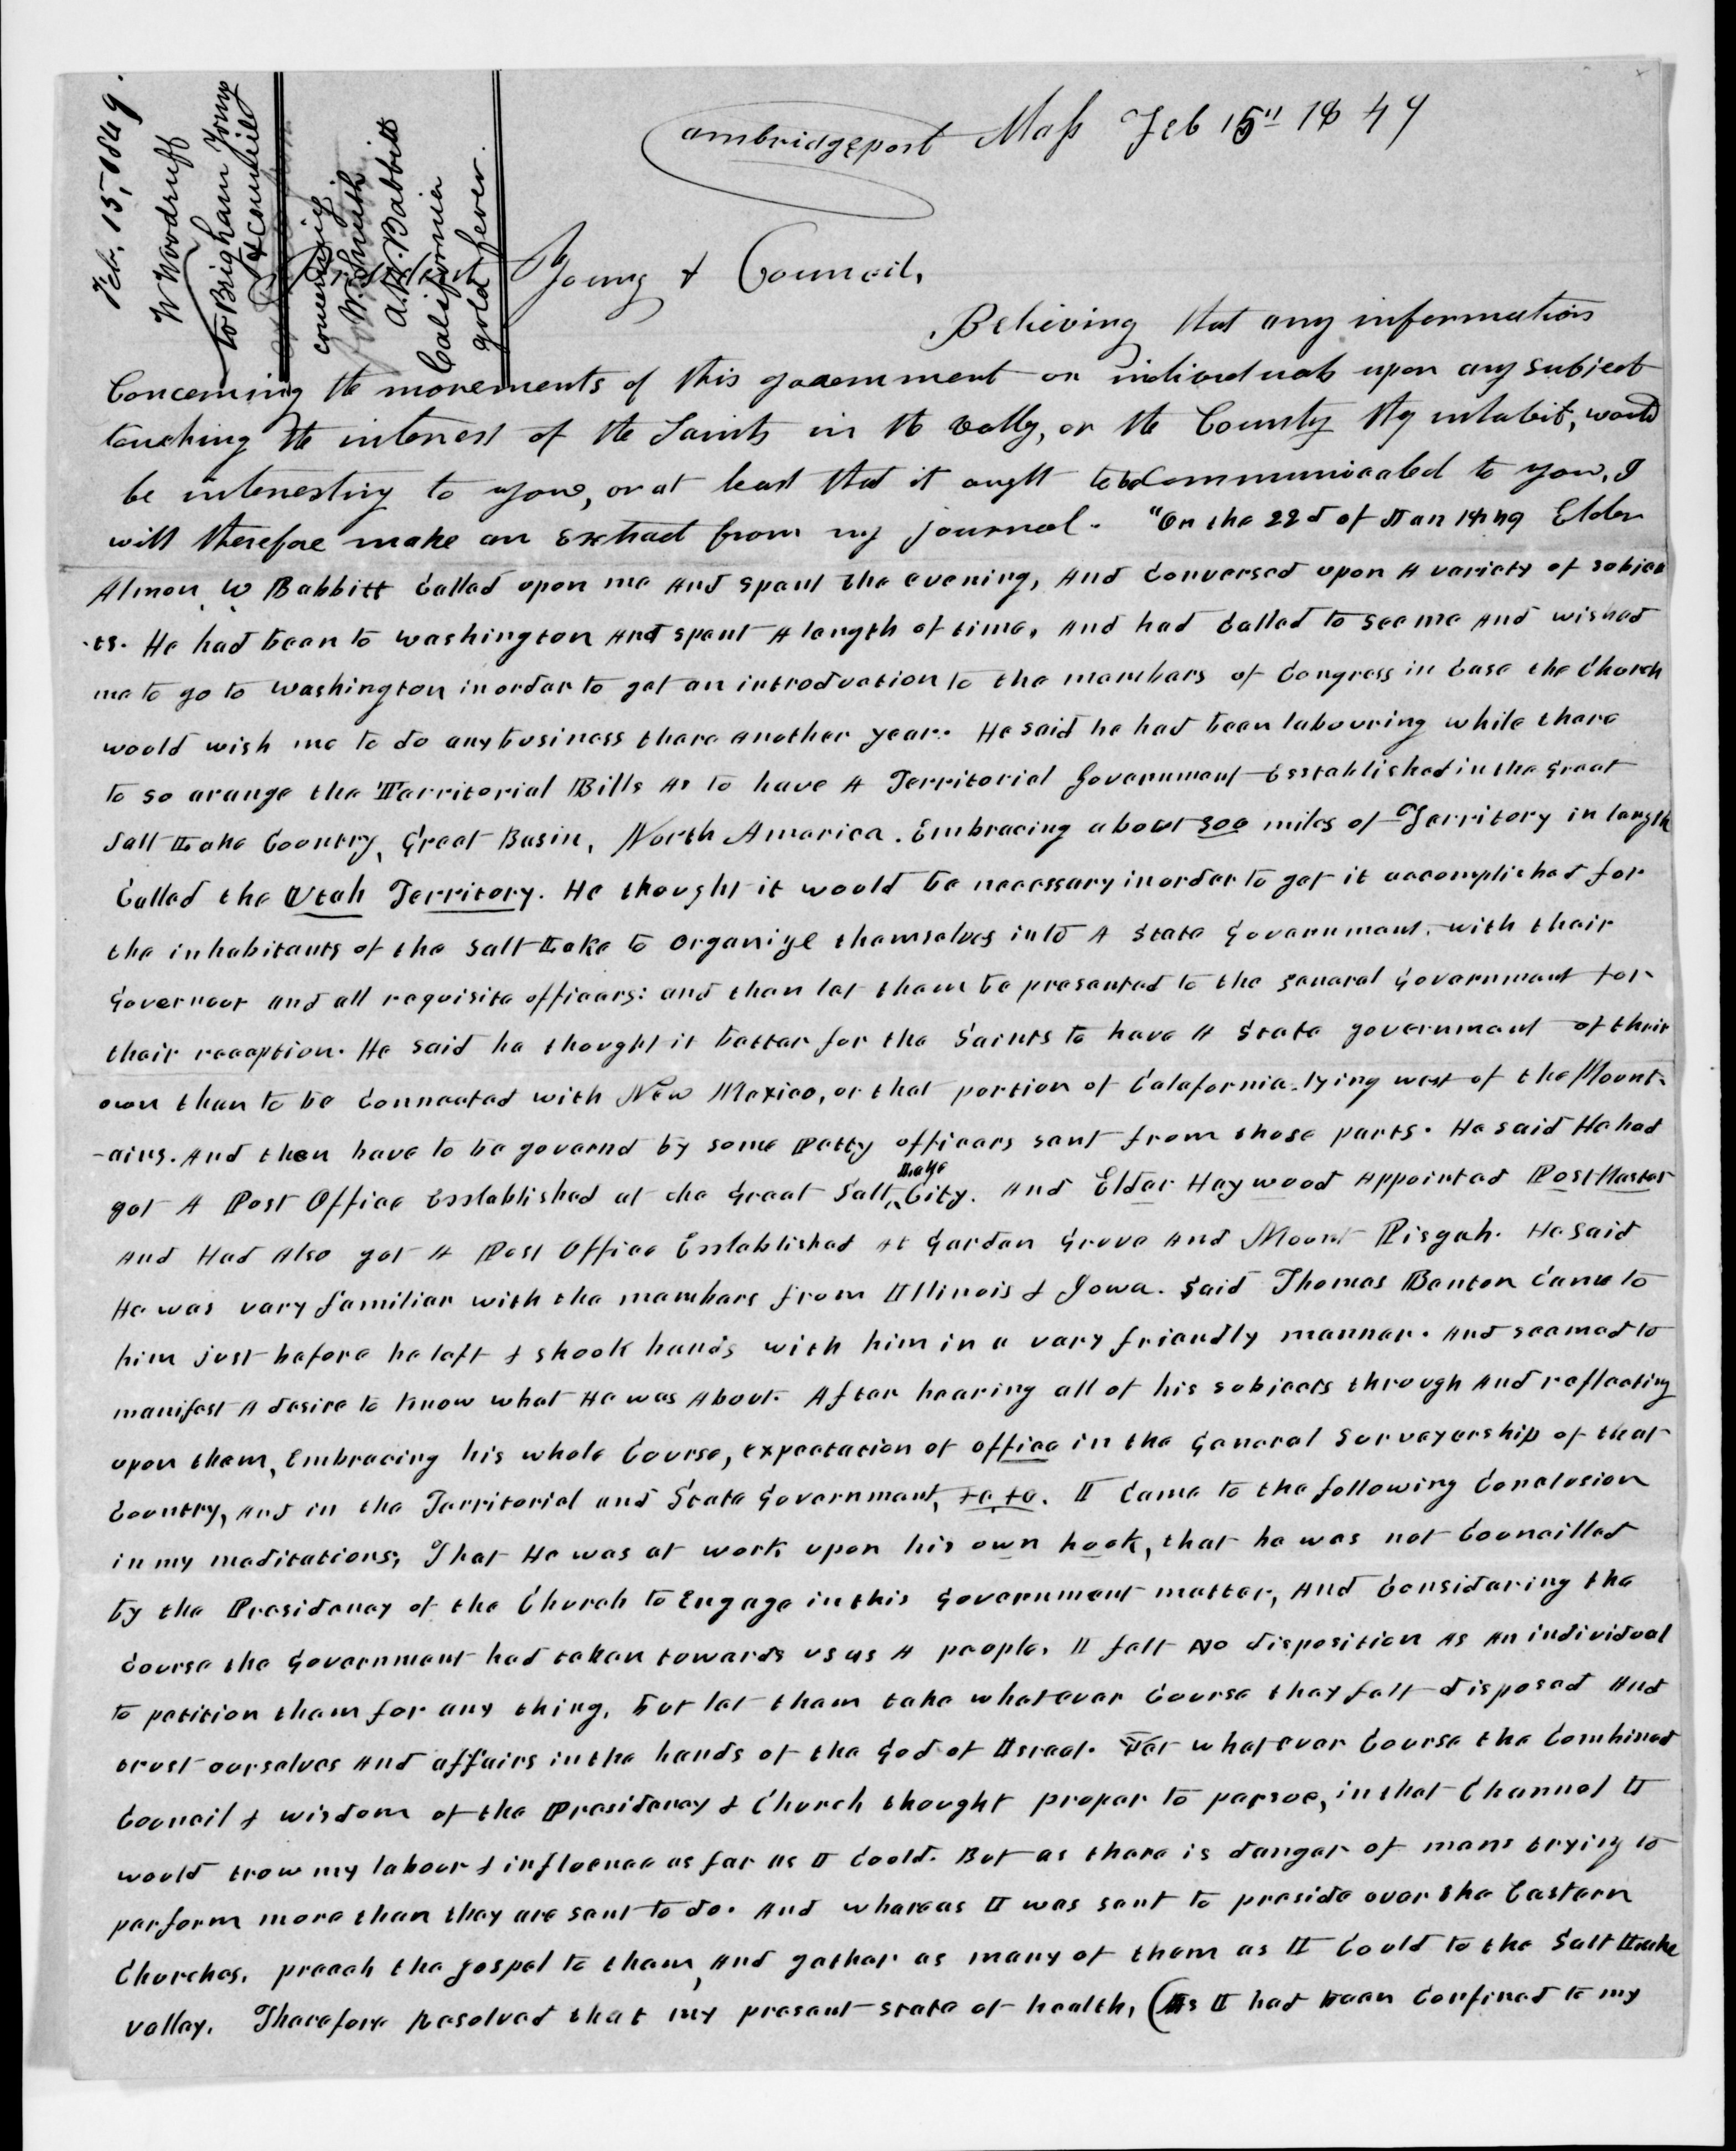 Feb. 15, 1849.
W Woodruff
to Brigham Young
& Council
concerning
W. Smith
A. W. Babbitt
California
gold fever.
Cambridgeport Mass Feb 15th 1849
President Young & Council,
Believing that any information
Concerning the movements of this government or individuals upon any subject
touching the interest of the Saints in the vally, or the County they inhabit, would
be interesting to you, or at least that it ought to be Communicated to you, I
will therefore make an extract from my journal. "On the 22d of Jan 1849 Elder
Almon W Babbitt Called upon me And spent the evening, And Conversed upon A variety of subjec
-ts. He had been to Washington And spent A length of time, And had Called to see me And wished
me to go to Washington in order to get an introduction to the members of Congress in Case the Church
would wish me to do any business there Another year. He said he had been labouring while there
to so arange the Territorial Bills As to have A Territorial Government Esstablished in the Great
Salt Lake Country, Great Basin, North America. Embracing about 300 miles of Territory in length
Called the Utah Territory. He thought it would be necessary in order to get it accomplished for
the inhabitants of the Salt Lake to organize themselves into A State Government, with their
Governor and all requisite officers: and then let them be presented to the general Government for
their reception. He said he thought it better for the Saints to have A State government of their
own than to be Connected with New Mexico, or that portion of Calafornia lying west of the Mount-
-ains. And then have to be governd by some Petty officers sent from those parts. He said He had
got A Post Office Esstablished at the Great Salt Lake City. And Elder Haywood Appointed Post Master
And Had Also got A Post Office Esstablished At Garden Grove And Mount Pisgah. He said
He was very familiar with the members from Illinois & Iowa. Said Thomas Benton Came to
him just before he left & shook hands with him in a very friendly manner. And seemed to
manifest A desire to know what He was About. After hearing all of his subjects through And reflecting
upon them, Embracing his whole Course, expectation of office in the General Surveyership of that
Country, And in the Territorial and State Government, &c &c. I Came to the following Conclusion
in my meditations; That He was at work upon his own hook, that he was not Councilled
by the Presidency of the Church to Engage in this Government matter, And Considering the
Course the Government had taken towards us as A people, I felt No disposition As An individual
to petition them for any thing, but let them take whatever Course they felt disposed And
trust ourselves And affairs in the hands of the God of Israel. Yet whatever Course the Combined
Council & wisdom of the Presidency & Church thought proper to persue, in that Channel I
would trow my labour & influence as far as I Could. But as there is danger of mens trying to
perform more than they are sent to do. And whereas I was sent to preside over the Eastern
Churches, preach the gospel to them, And gather as many of them as I Could to the Salt Lake
valley. Therefore Resolved that my present state of health, (As I had been Confined to my